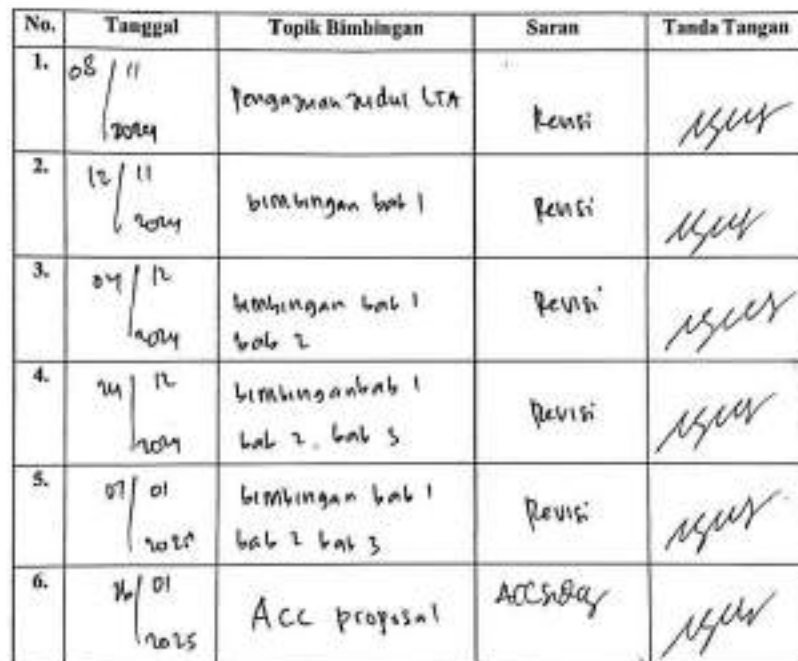 No. Tanggal Topik Bimbingan Saran Tanda Tangan
1. 08/11 2024 Pengajuan Judul LTA Revisi
2. 12/11 2024 bimbingan bab 1 Revisi
3. 04/12 2024 bimbingan bab 1 Revisi
bab 2
4. 24/12 2024 bimbingan bab 1 Revisi
bab 2, bab 3
5. 07/01 2025 bimbingan bab 1 Revisi
bab 2 bab 3
6. 01 2025 Acc proposal ACC